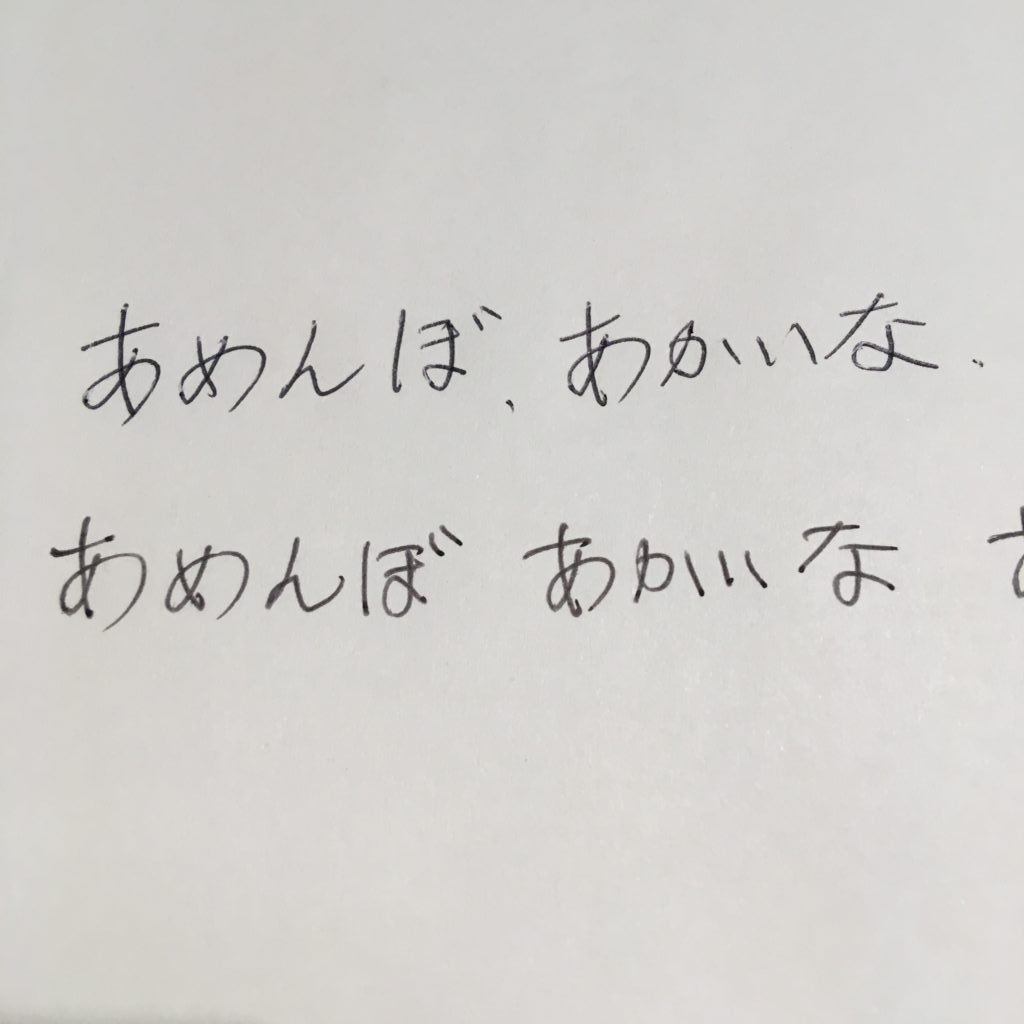 あめんぼ、あかいな、
あめんぼ あかいな